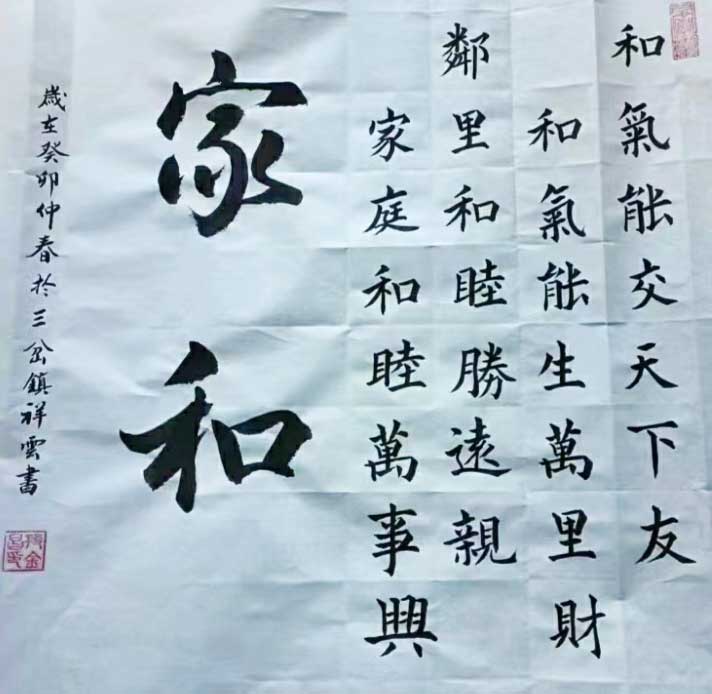 和氣能交天下友
和氣能生萬里財
鄰里和睦勝遠親
家庭和睦萬事興
家和
歲在癸卯仲春於三岔鎮祥雲書